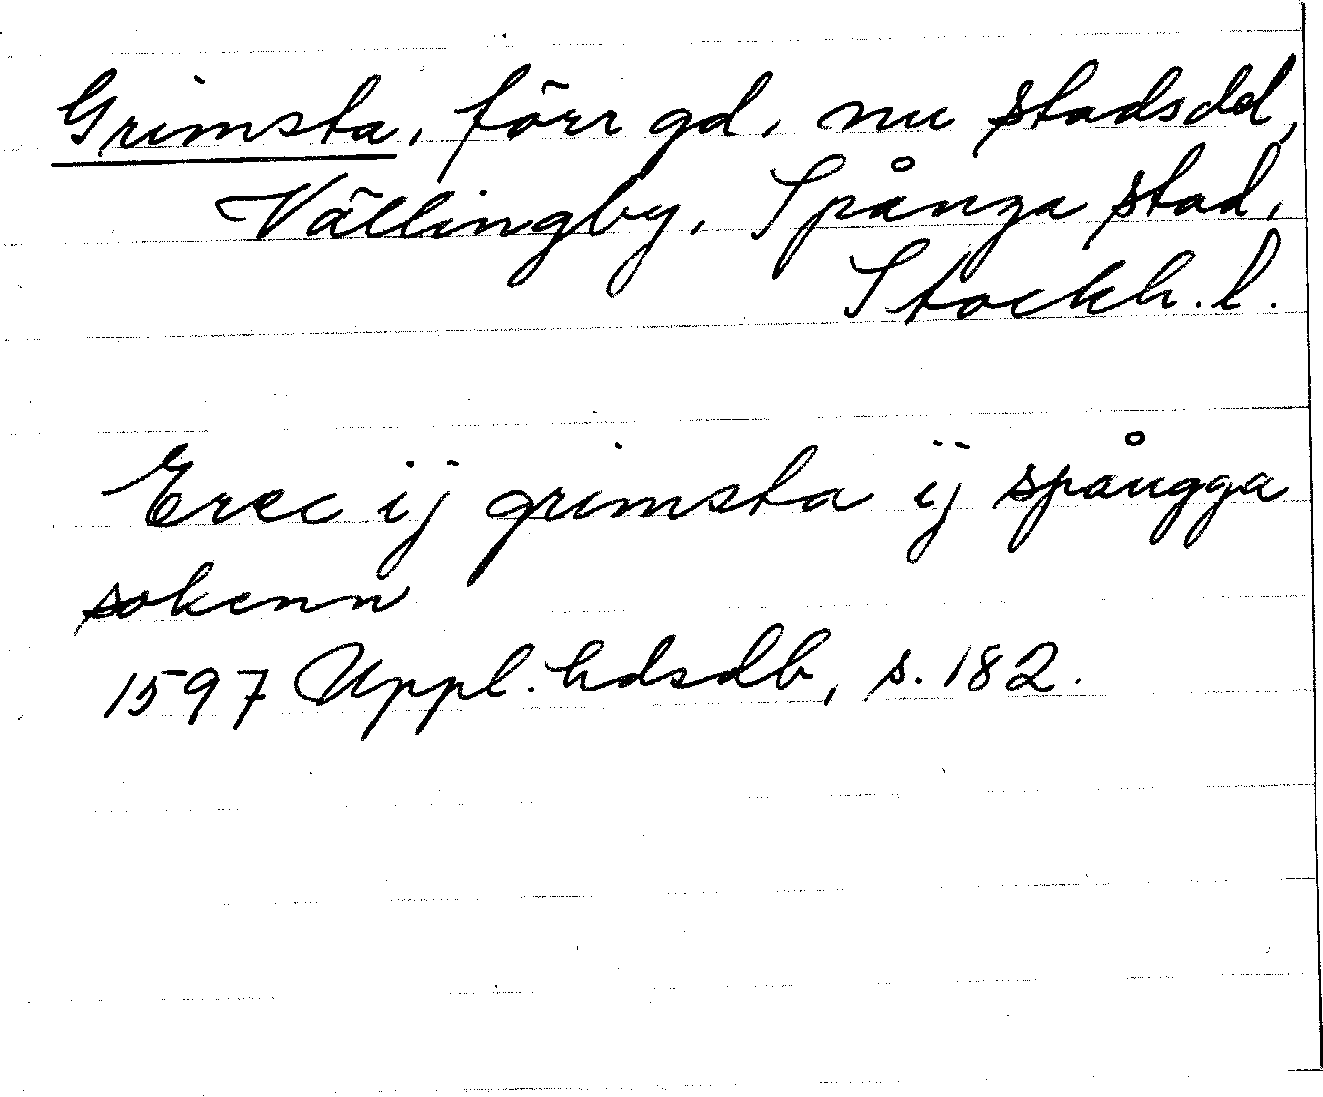 Grimsta, förr gd, nu stadsdel,
Vällingby, Spånga stad,
Stockh. l.
Erec ij grimsta ij spångga
sokenn
1597 Uppl. hdsdb, s. 182.